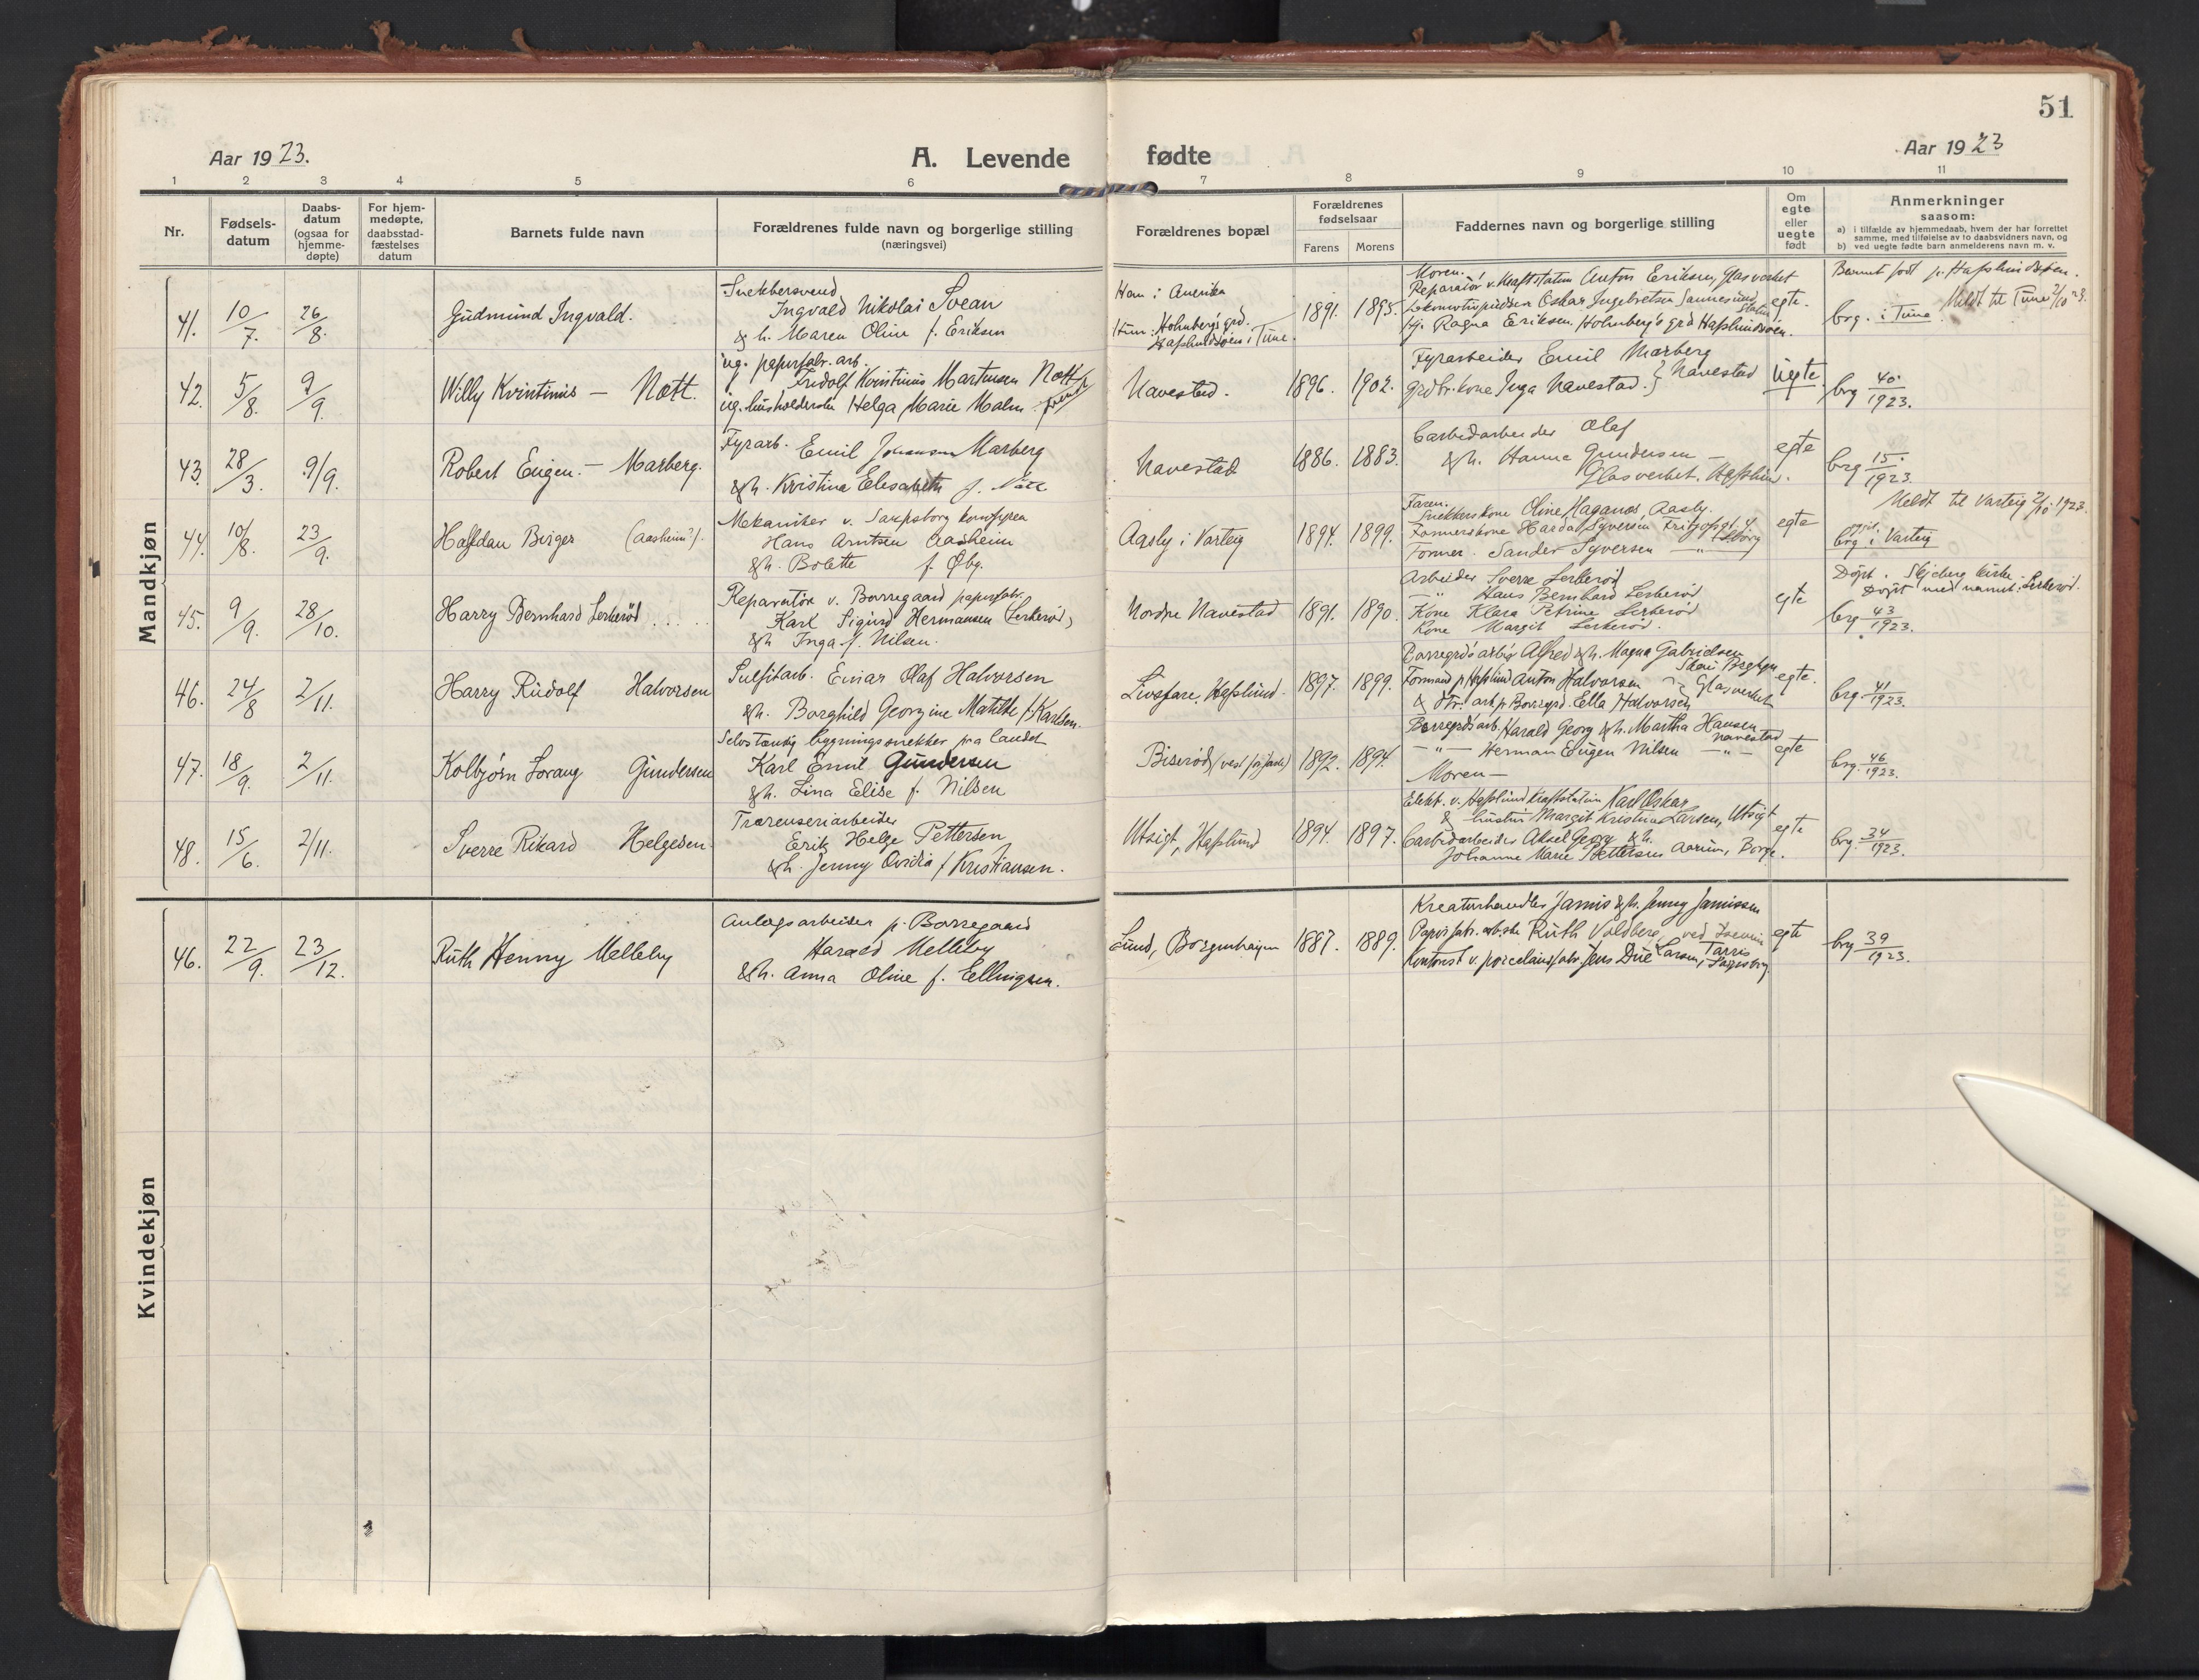 51
Aar 1923.
A. Levende fødte
Aar 1923
1 2 3 4 5 6 7 8 9 10 11
Nr.
Fødsels-
datum
Daabs-
datum
(ogsaa for
hjemme-
døpte)
For hjem-
medøpte,
daabsstad-
fæstelses
datum
Barnets fulde navn
Forældrenes fulde navn og borgerlige stilling
(næringsvei)
Forældrenes bopæl
Forældrenes
fødselsaar
Farens Morens
Faddernes navn og borgerlige stilling
Om
egte
eller
uegte
født
Anmerkninger
saasom:
a) i tilfælde av hjemmedaab, hvem der har forrettet
samme, med tilføielse av to daabsvidners navn, og
b) ved uegte fødte barn anmelderens navn m. v.
Mandkjøn
41. 10/7. 26/8. Gudmund Ingvald.
Snekkersvend
Ingvald Nikolai Svean
& h. Maren Oline f. Eriksen
Han i Amerika
Hun: Holmberg's grd.
Hafslundsøen i Tune.
1891. 1895.
Moren.
Reparatør v. Kraftstation Anton Eriksen, Glasverket
Oskar Ingebretsen Sannesund
Hj. Ragna Eriksen. Holmberg's grd Hafslundsøen.
egte.
Barnet født p. Hafslundsøen.
Meldt til Tune 2/10 23.
brg. i Tune
42. 5/8. 9/9. Willy Kvintinus — Nott.
ug. papirfabr. arb.
Fridolf Kvintinus Martinsen Nott
ug. husholderske Helga Marie Malm
Navestad.
1896. 1902.
Fyrarbeider Emil Marberg
grdbr.kone Inga Navestad. } Navestad
uegte.
brg 40/1923.
43. 28/3. 9/9. Robert Eugen. — Marberg.
Fyrarb. Emil Johansen Marberg
& h. Kristina Elisabeth f. Nätt
Navestad
1886. 1883.
Carbidarbeider Olaf
& h. Hanna Gundersen —
Glasverket. Hafslund.
egte
brg 15/1923.
44. 10/8. 23/9. Halfdan Birger (Aasheim?).
Mekaniker v. Sarpsborg
Hans Arntsen Aasheim
& h. Bolette f. Øby.
Aasly i Varteig
1894. 1899.
Faren.
Snekkerskone Oline Haganes, Aasly.
Formerskone Harda Syversen
Former. Sander Syversen — " —
egte
Meldt til Varteig 2/10 1923.
brg i Varteig
45. 9/9. 28/10. Harry Bernhard Lerkerød
Reparatør v. Borregaard papirfabr.
Karl Sigurd Hermansen (Lerkerød)
& h Inga f. Nilsen.
Nordre Navestad
1891. 1890.
Arbeider Sverre Lerkerød
— " Hans Bernhard Lerkerød
Kone Klara Petrine Lerkerød
Kone Margit Lerkerød.
egte
Døpt i Skjeberg kirke
Døpt med navnet: Lerkerød.
brg 43/1923.
46. 24/8 2/11. Harry Rudolf Halvorsen
Sulfitarb. Einar Olaf Halvorsen
& h. Borghild Georgine Matilde f. Karlsen.
Livsfare, Hafslund.
1897. 1899.
Borregrd's arb. Alfred & h. Magna Gabrielsen
Formand p Hafslund Anton Halvorsen
& frk. arb. p Borregrd. Ella Halvorsen } Glasverket
egte.
brg. 41/1923.
47. 18/9. 2/11. Kolbjørn Lorang Gundersen
Selvstændig bygningssnekker fra landet
Karl Emil Gundersen
& h. Lina Elise f. Nilsen
Biserød (vest for jernb)
1892. 1894.
Borregrd's arb. Harald Georg & h. Martha Hansen
Navestad
— " — Herman Eugen Nilsen — " —
Moren —
egte
brg. 46/1923.
48. 15/6. 2/11. Sverre Rikard Helgesen.
Trærenseriarbeider
Erik Helge Pettersen
& h. Jenny Ovidia f Kristiansen.
Utsigt, Hafslund
1894. 1897.
Elekt. v. Hafslund Kraftstation Karl Oskar
& hustru Margit Kristine Larsen, Utsigt
Carbidarbeider Aksel Georg & h.
Johanne Marie Pettersen Aarum, Borge.
egte
brg. 34/1923.
Kvindekjøn
46. 22/9. 23/12. Ruth Henny Melleby
Anlægsarbeider p. Borregaard
Harald Melleby
& h. Anna Oline f. Ellingsen.
Lund, Borgenhaugen
1887. 1889.
Kreaturhandler Jamis & h. Jenny Jamissen
Papirfabr. arb.ske Ruth Voldberg, ved
Kontorist v. porcelænsfabr. Jens Due Larsen, Tarris
Sarpsborg
egte
brg 39/1923.